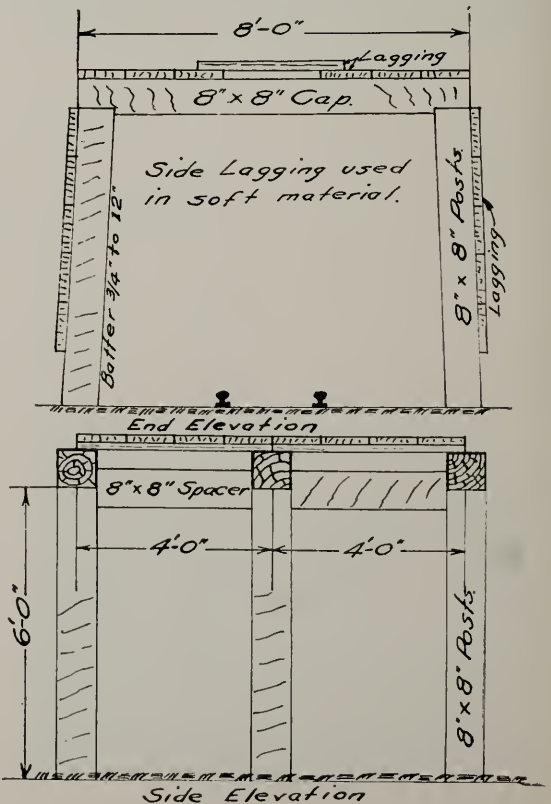 8'-0"
Lagging
8" x 8" Cap.
Side Lagging used
in soft material.
Batter 3/4" to 12"
8" x 8" Posts
Lagging
End Elevation
8" x 8" Spacer
4'-0"
4'-0"
6'-0"
8" x 8" Posts
Side Elevation